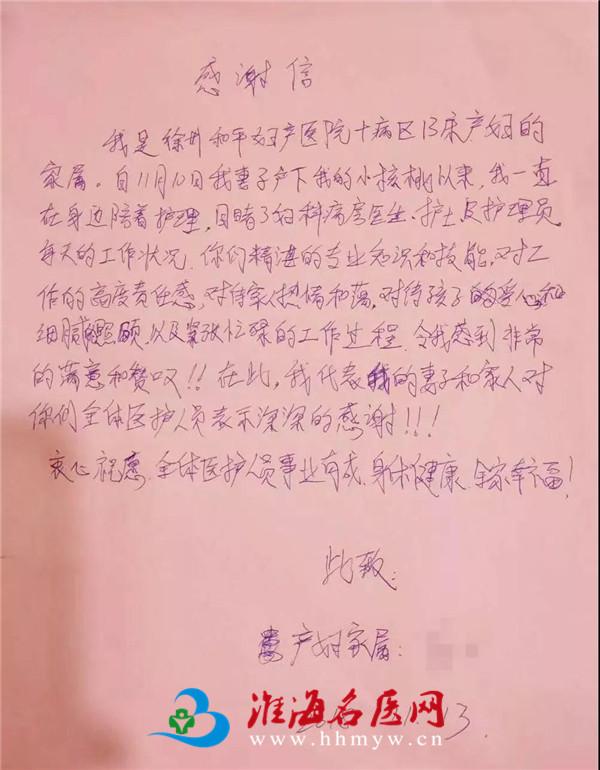 感谢信
我是徐州和平妇产医院十病区13床产妇的
家属。自11月10日我妻子产下我的小核桃以来,我一直
在身边陪着护理,目睹了妇科病房医生、护士及护理员
每天的工作状况.你们精湛的专业知识和技能,对工
作的高度责任感,对待家人热情和蔼,对待孩子的爱心和
细腻照顾,以及紧张忙碌的工作过程.令我感到非常
的满意和赞叹!!在此,我代表我的妻子和家人对
你们全体医护人员表示深深的感谢!!!
衷心祝愿.全体医护人员事业有成.身体健康.全家幸福!
此致:
产妇家属:
淮海名医网
www.hhmyw.cn